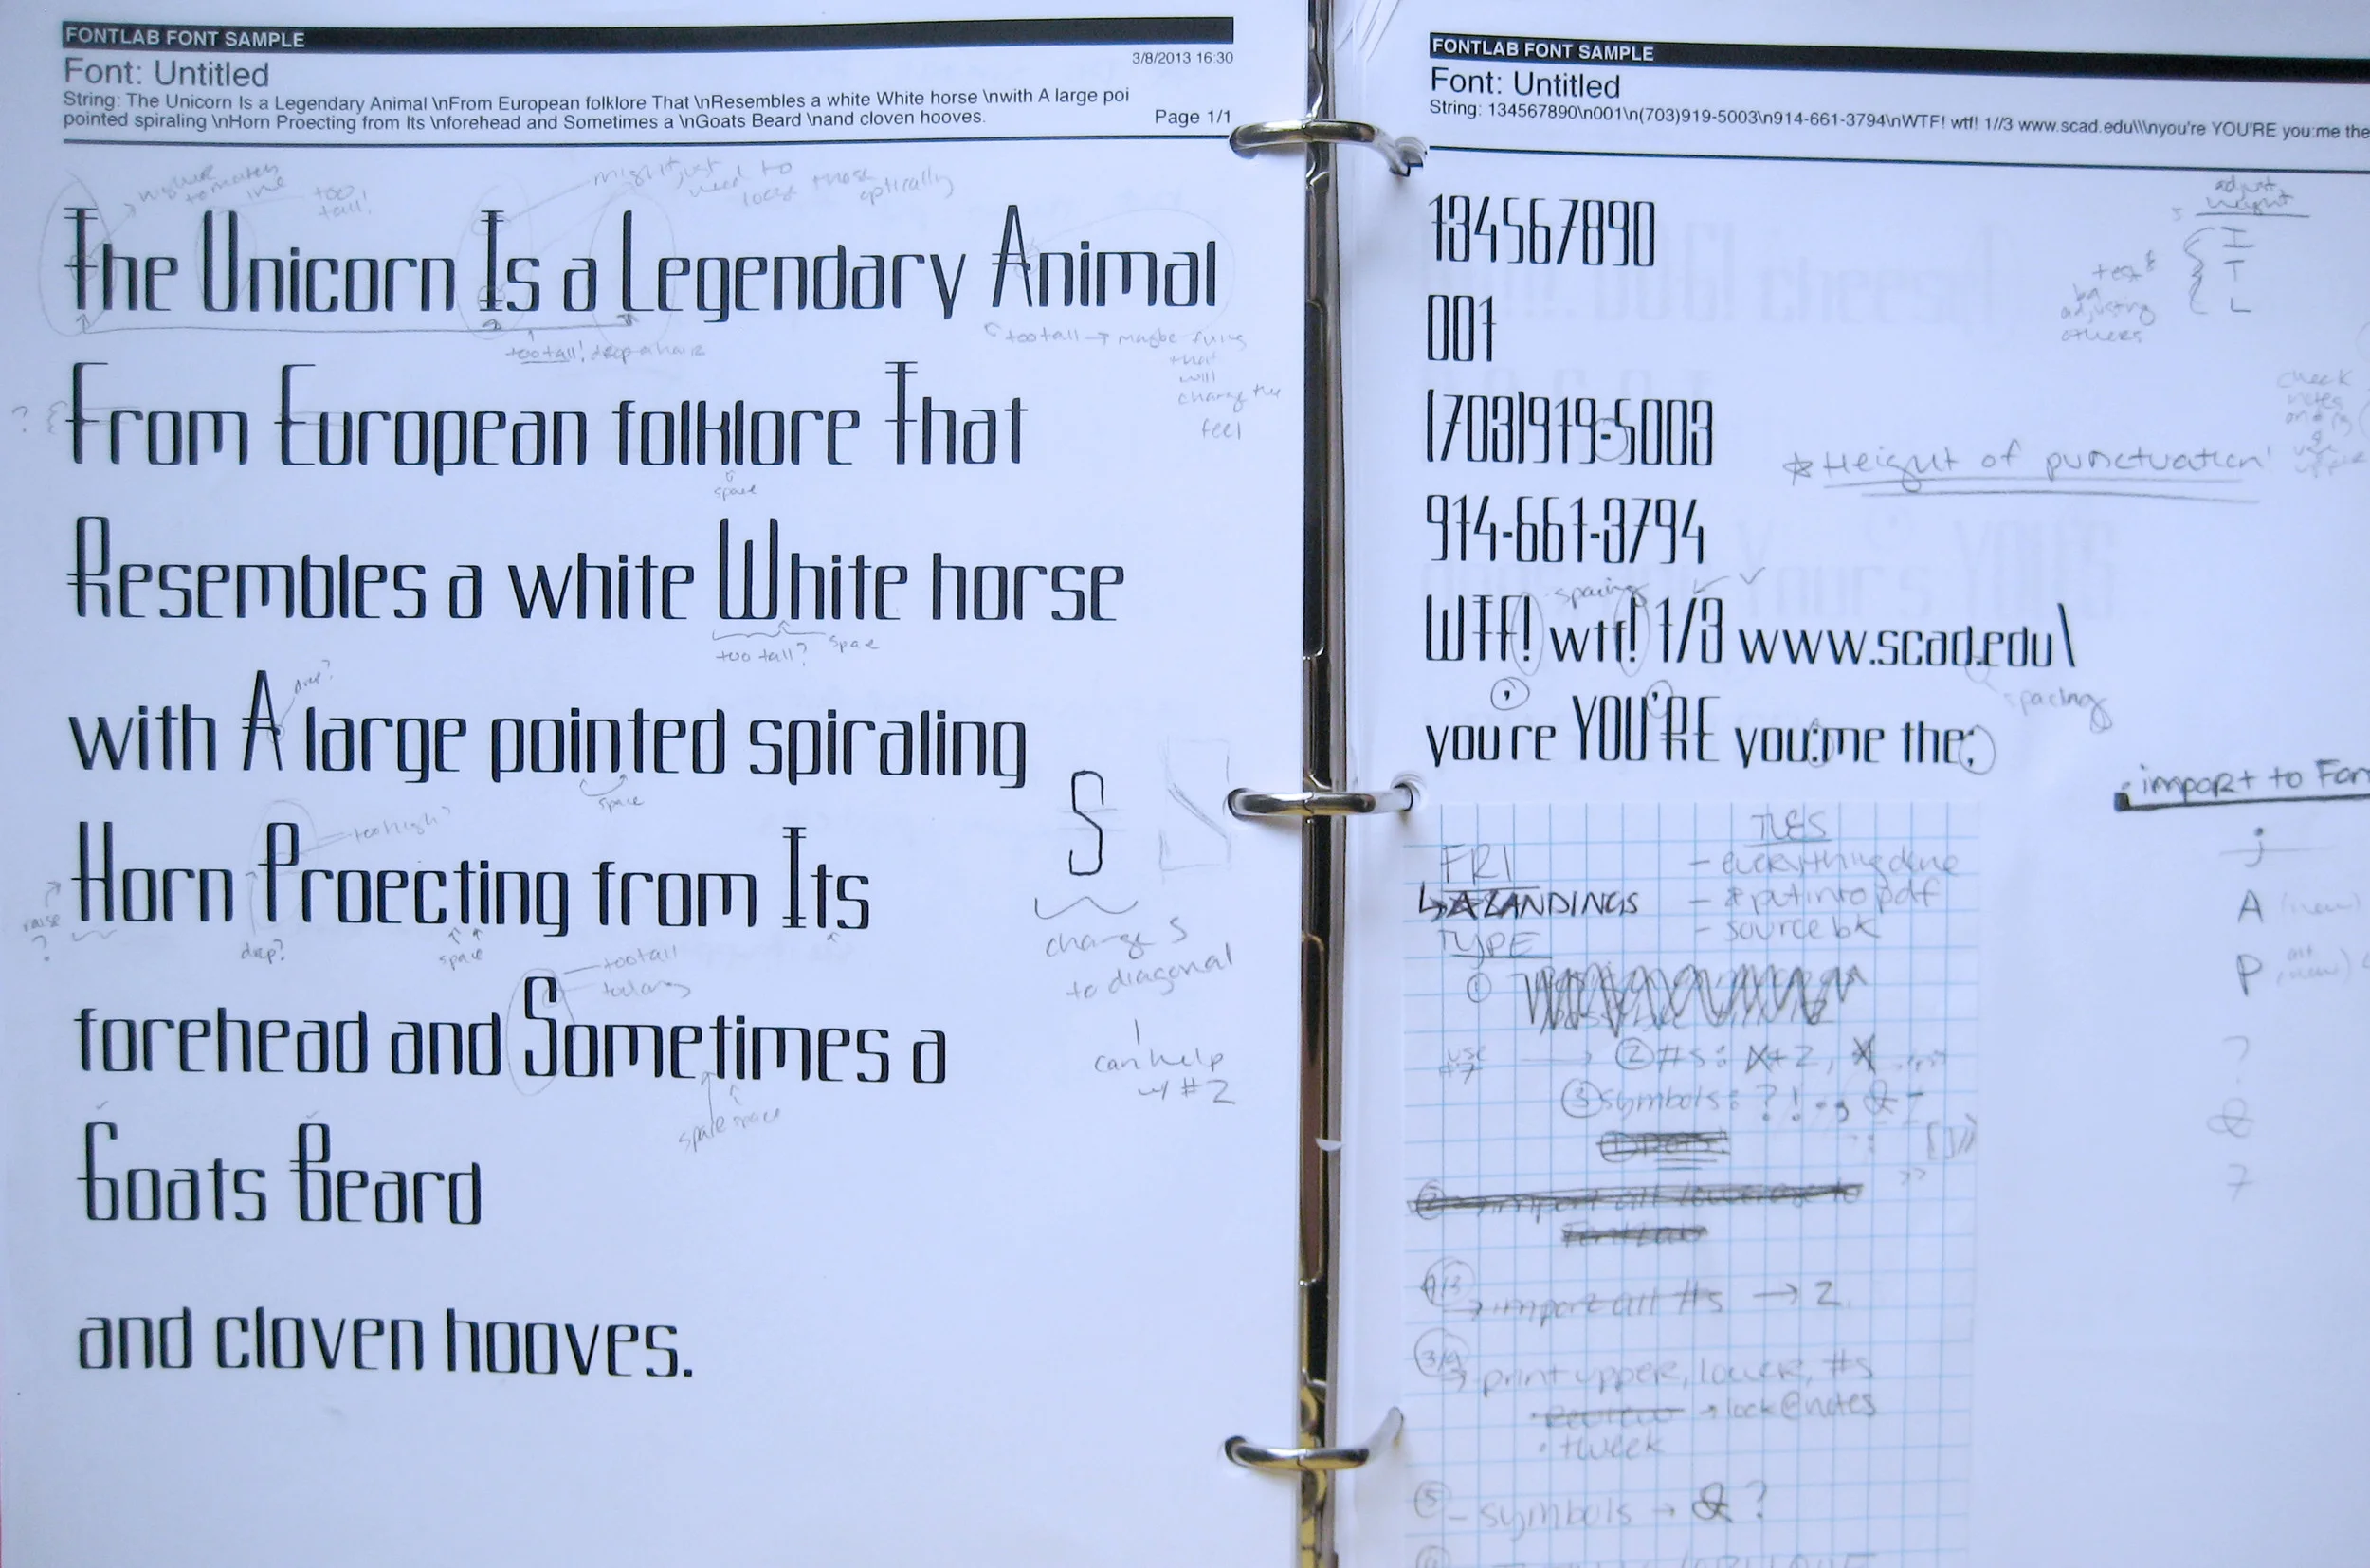 FONTLAB FONT SAMPLE
3/8/2013 16:30
Font: Untitled
String: The Unicorn Is a Legendary Animal \nFrom European folklore That \nResembles a white White horse \nwith A large poi
pointed spiraling \nHorn Proecting from Its \nforehead and Sometimes a \nGoats Beard \nand cloven hooves.
Page 1/1
higher to match line
too tall!
might just need to loose those optically
The Unicorn Is a Legendary Animal
too tall! drop a hair
too tall → maybe fixing
that
will
change the
feel
?
From European folklore That
space
Resembles a white White horse
too tall?
space
drop?
with A large pointed spiraling
space
too high?
Horn Proecting from Its
raise
?
drop?
space
S
change S
to diagonal
can help
w/ #2
too tall
forehead and Sometimes a
space space
Goats Beard
and cloven hooves.
FONTLAB FONT SAMPLE
Font: Untitled
String: 134567890\n001\n(703)919-5003\n914-661-3794\nWTF! wtf! 1//3 www.scad.edu\\\nyou're YOU'RE you:me the
adjust
height
I
T
L
test
by
adjusting
others
134567890
001
(703)919-5003
check
notes
*Height of punctuation!
914-661-3794
spacing
WTF! wtf! 1/3 www.scad.edu\
spacing
,
youre YOU'RE you:me the;
import to Fon
j
A (new)
P
?
&
7
FRI
TUES
- everything done
LANDINGS
- & put into pdf
TYPE
- source bk
①
use
#7
② #s: X+2,
③ symbols: ? ! . , & -
import all lowercase to
FontLab
→ import all #s → 2
3/4
→ print upper, lower, #s
→ look @ notes
• tweek
⑤ - symbols → & ?